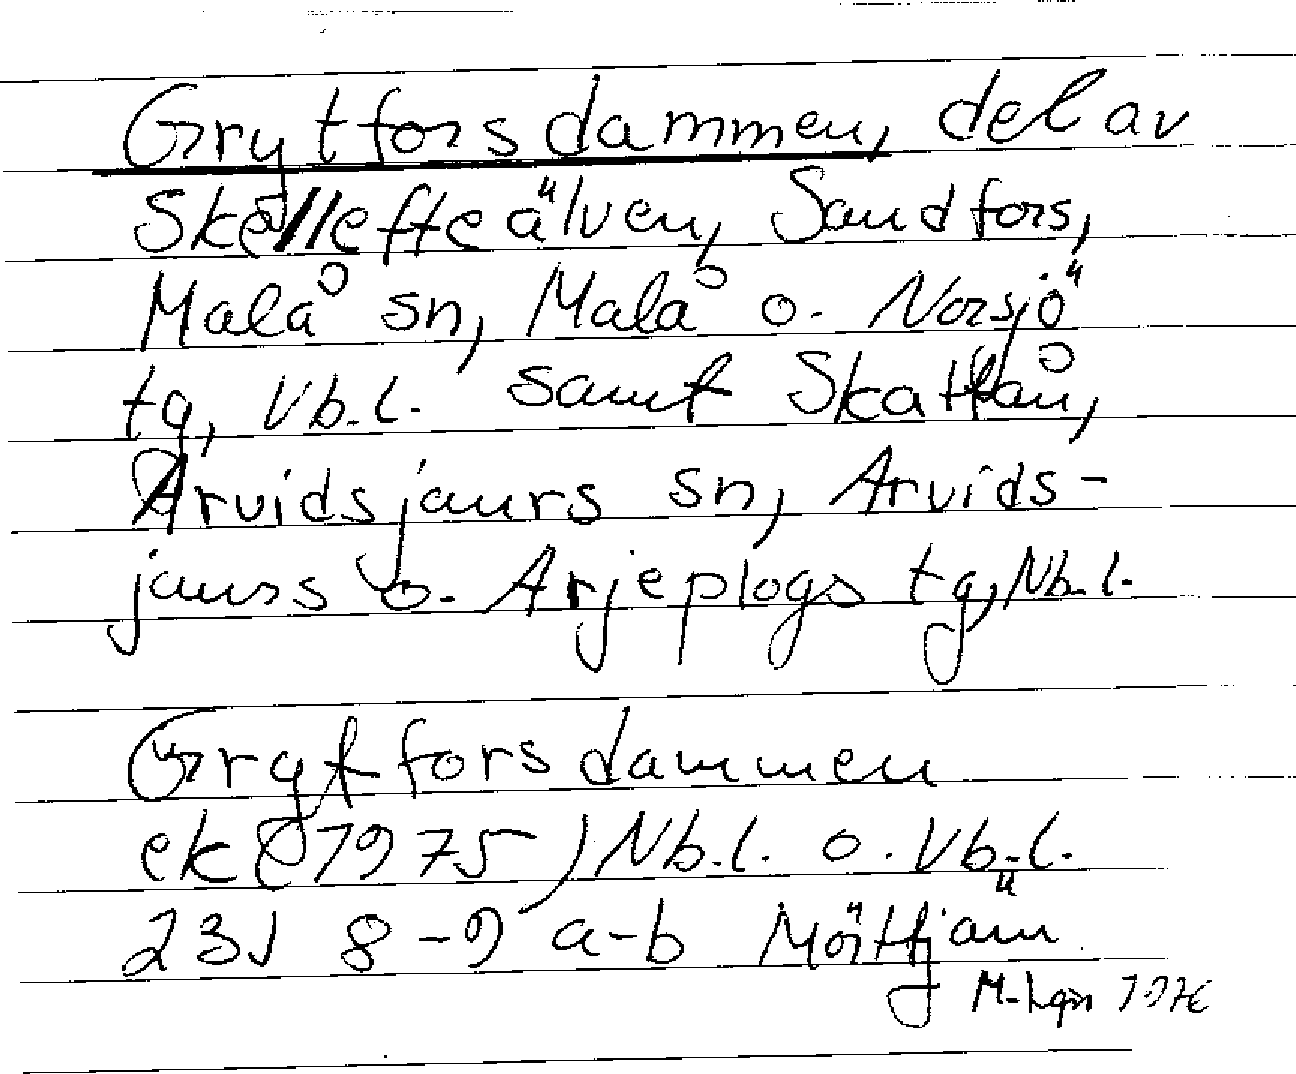 Grytforsdammen, del av
Skellefteälven, Sandfors,
Malå sn, Malå o. Norsjö
tg, Vb.l. samt Skattån,
Arvidsjaurs sn, Arvids-
jaurs o. Arjeplogs tg, Nb.l.
Grytforsdammen
ek (1975) Nb.l. o. Vb.l.
23J 8-9 a-b Mörttjärn